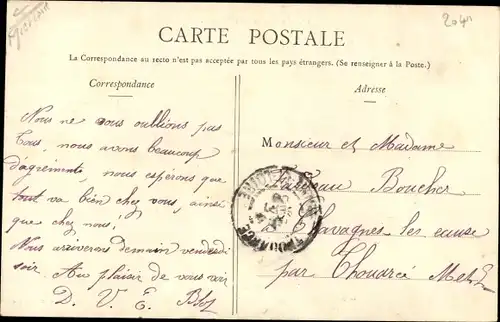 2040
CARTE POSTALE
La Correspondance au recto n'est pas acceptée par tous les pays étrangers. (Se renseigner à la Poste.)
Correspondance
Adresse
Nous ne vous oublions pas
Tous, nous avons beaucoup
d'agréments, nous espérons que
tout va bien chez vous, ainsi
que chez nous!
Nous arriverons demain vendredi
soir. Au plaisir de vous voir
D. V. E. Blot
Monsieur et Madame
Boucher
Chavagnes les eaux
par Thouarcé M et L